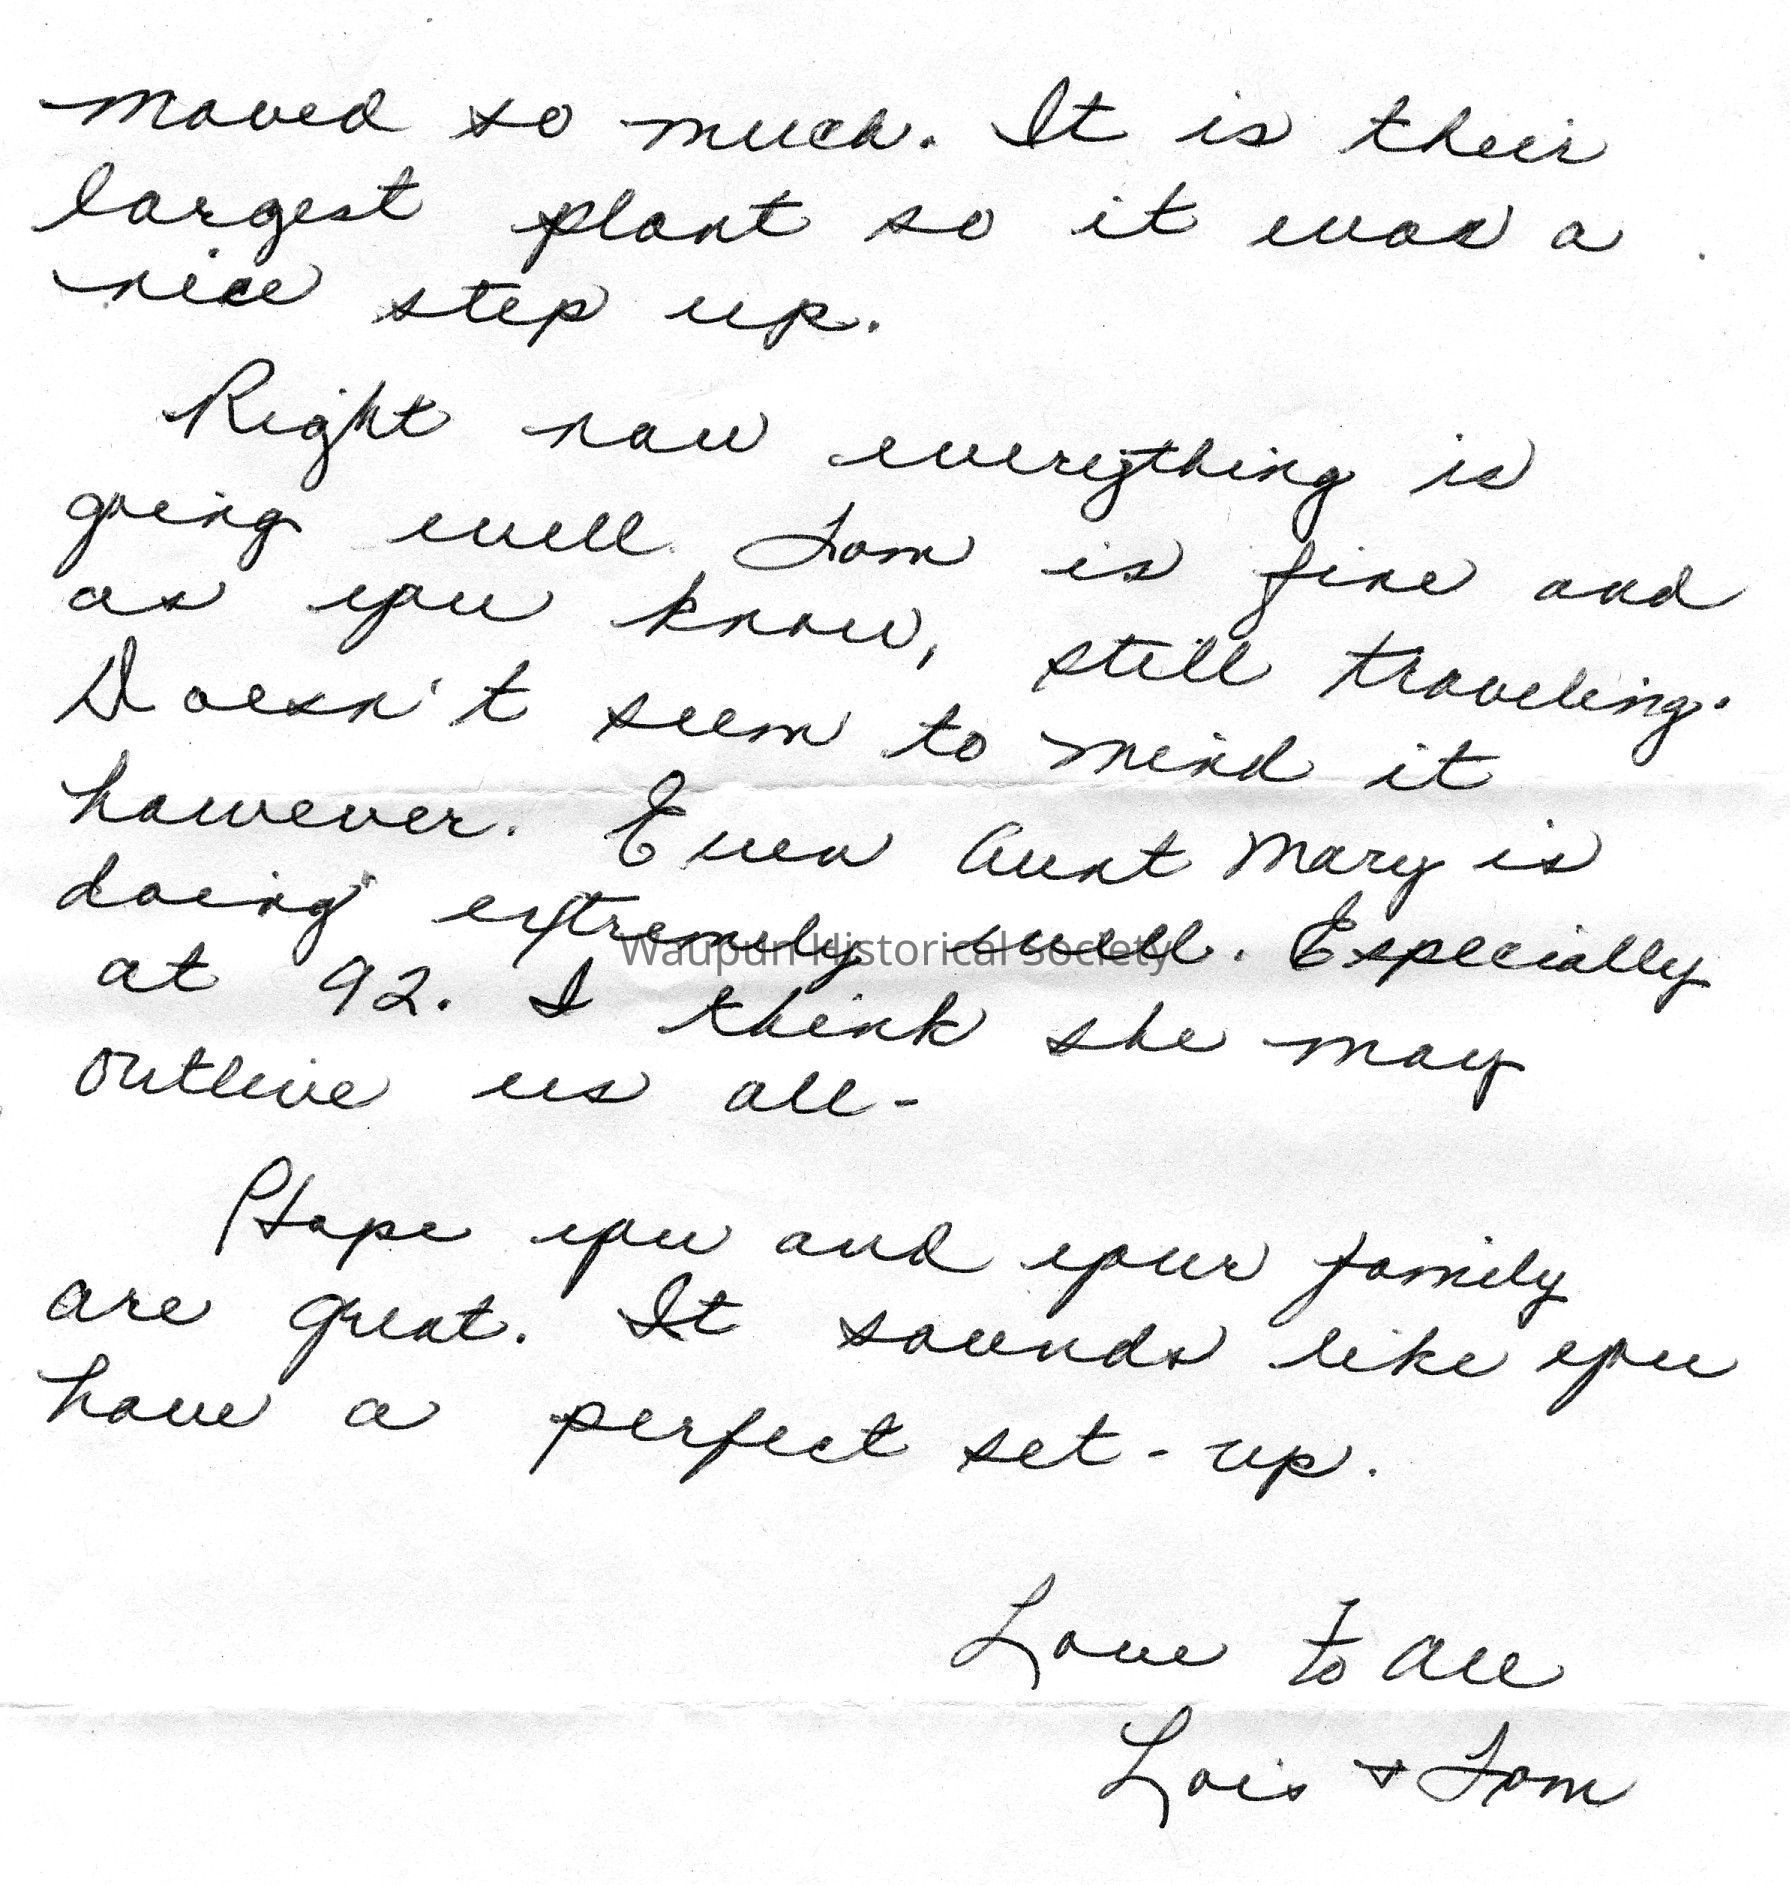 moved so much. It is their
largest plant so it was a
nice step up.
Right now everything is
going well. Tom is fine and
as you know, still traveling.
Doesn't seem to mind it
however. Even Aunt Mary is
doing extremely well. Especially
Waupun Historical Society
at 92. I think she may
outlive us all -
Hope you and your family
are great. It sounds like you
have a perfect set-up.
Love to all
Lois & Tom